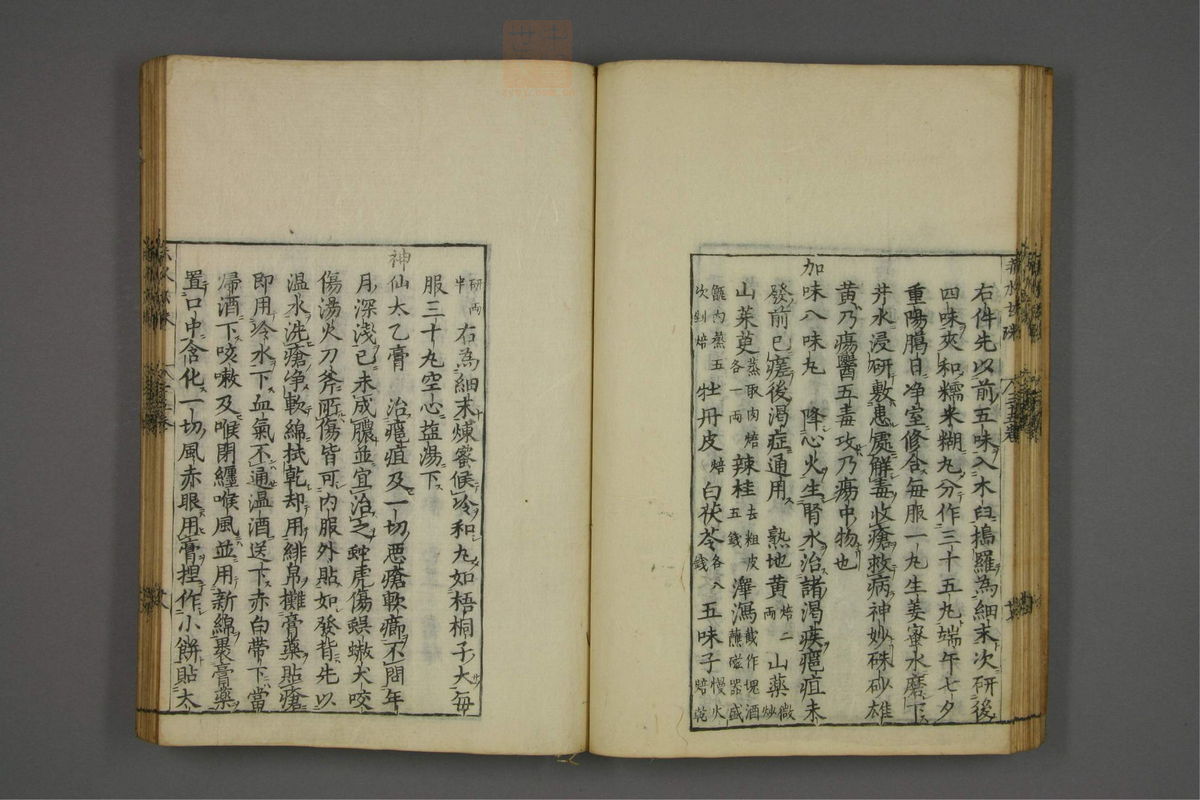 右件先以前五味入木臼搗羅為細末次研後
四味夾和糯米糊丸分作三十五丸端午七夕
重陽臈日净室修合每服一丸生姜蜜水磨下
井水浸研敷患處解毒收瘡救病神妙硃砂雄
黄乃瘍醫五毒攻乃瘍中物也
加味八味丸 降心火生腎水治諸渴疾癰疽未
發前已瘥後渴症通用 熟地黄焙二兩 山藥微炒
山茱萸蒸取肉焙各一兩 辣桂去粗皮五錢 澤瀉截作塊酒蘸磁器盛
甑内蒸五次剉焙 牡丹皮焙 白茯苓各八錢 五味子慢火焙乾
研兩半 右為細末煉蜜候冷和丸如梧桐子大每
服三十丸空心盐湯下
神仙太乙膏 治癰疽及一切惡瘡軟癤不問年
月深淺已未成膿並宜治之蛇虎傷蜈蚣犬咬
傷湯火刀斧所傷皆可内服外貼如發背先以
温水洗瘡净軟綿拭乾却用緋帛攤膏藥貼瘡
即用冷水下血氣不通温酒送下赤白帶下當
歸酒下咳嗽及喉閉纏喉風並用新綿裹膏藥
置口中含化一切風赤眼用膏捏作小餅貼太